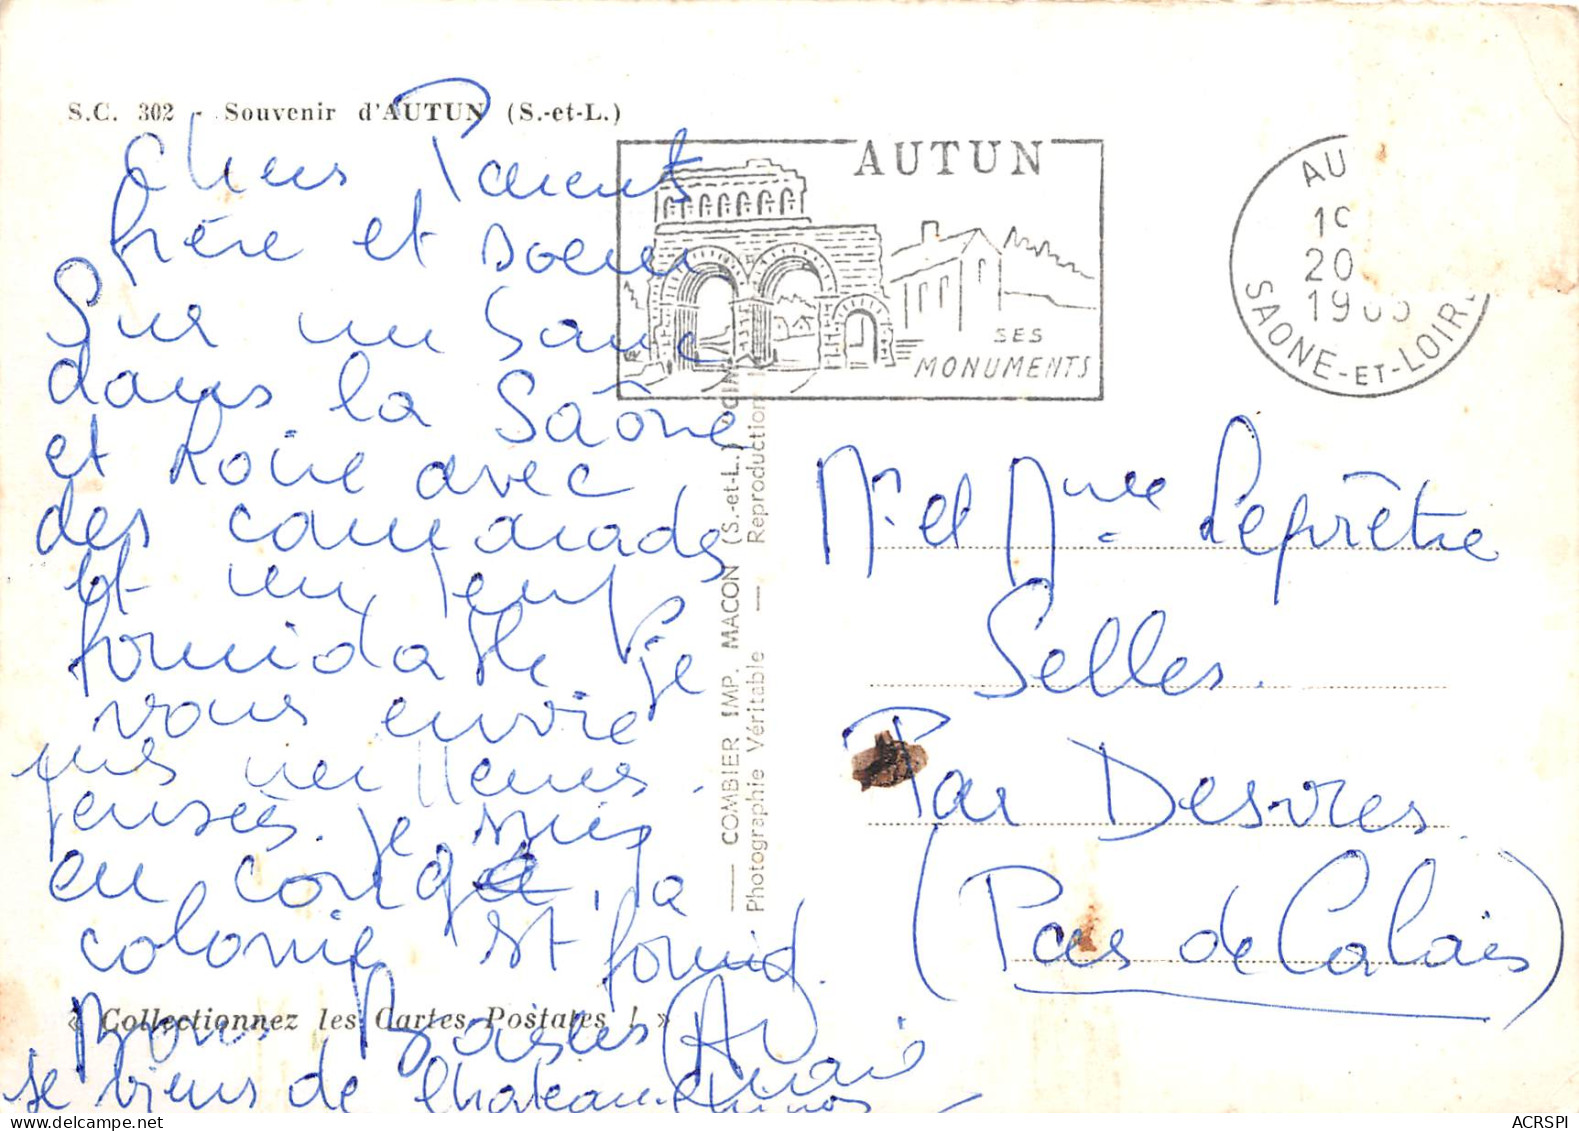 S.C. 302 - Souvenir d'AUTUN (S.-et-L.)
Chers Parents
frère et soeur
Sur un banc
dans la Saône
et Loire avec
des camarades
et un temps
formidable je
vous envie
mes meilleures
pensées. je suis
en congé, la
colonie est formid.
Bons Baisers
je viens de Chateau
« Collectionnez les Cartes Postales ! »
AUTUN
SES
MONUMENTS
AU
20
SAONE-ET-LOIRE
COMBIER IMP. MACON (S.-et-L.)
Photographie Véritable — Reproduction
Mr. et Mme Leprêtre
Selles.
Par Desvres.
(Pas de Calais)
ACRSPI